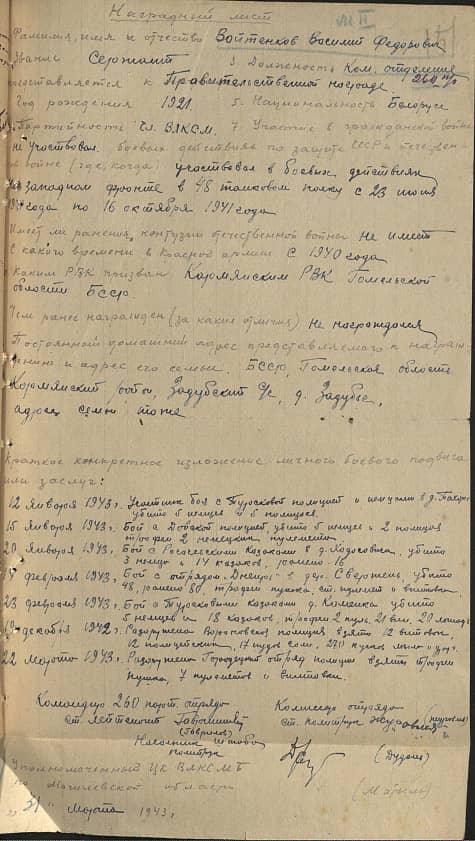 Наградный лист
Фамилия, имя и отчество Войтенков Василий Федорович
Звание Сержант 3. Должность Ком. отделения
представляется к Правительственной награде 260 п/о
Год рождения 1921. 5. Национальность Белорус
Партийность Чл. ВЛКСМ. 7. Участие в гражданской войне
не участвовал. боевых действиях по защите СССР и отечествен
войне (где, когда) участвовал в боевых действиях
На западном фронте в 48 танковом полку с 23 июня
года по 16 октября 1941 года
Имеет ли ранения, контузии отечественной войны Не имеет
С какого времени в Красной армии С 1940 года
Каким РВК призван Кормянским РВК Гомельской
области БССР.
Чем ранее награжден (за какие отличия) Не награждался
Постоянный домашний адрес представляемого к награж-
дению и адрес его семьи. БССР, Гомельская область
Кормянский район, Задубский с/с, д. Задубье,
адрес семьи тоже
Краткое конкретное изложение личного боевого подвига
или заслуг:
12 Января 1943 г. Участник боя с полицией и немцами в д.
убито 5 немцев и 5 полицаев.
15 Января 1943 г. Бой с Довской полицией, убито 5 немцев и 2 полицая
трофеи 2 немецких пулемета
20 Января 1943 г. Бой с Рогачевскими Казаками в д. Ходосовичи, убито
3 немца и 14 казаков, ранено 16
февраля 1943 г. Бой с отрядом "Днепр" в дер. Свержень, убито
48, ранено 80, трофеи пушка, ст. пулемет и винтовки.
23 февраля 1943 г. Бой с казаками д. Каменка убито
5 немцев и 18 казаков, трофеи 2 пул, 21 вин, 20 лошадей
декабря 1942 г. Разоружена Вороновская полиция взято 12 винтовок,
12 полицейских, 17 пудов соли, 290 кусков мыла и др.
22 марта 1943 г. Разоружена Городецкий отряд полиции взяты трофеи
пушка, 7 пулеметов и винтовки.
Командир 260 парт. отряда Комиссар отряда
ст. лейтенант (Гаврилов) ст. политрук
Начальник штаба
политрук
Уполномоченный ЦК ВЛКСМ
по Могилевской области
Марта 1943 г.